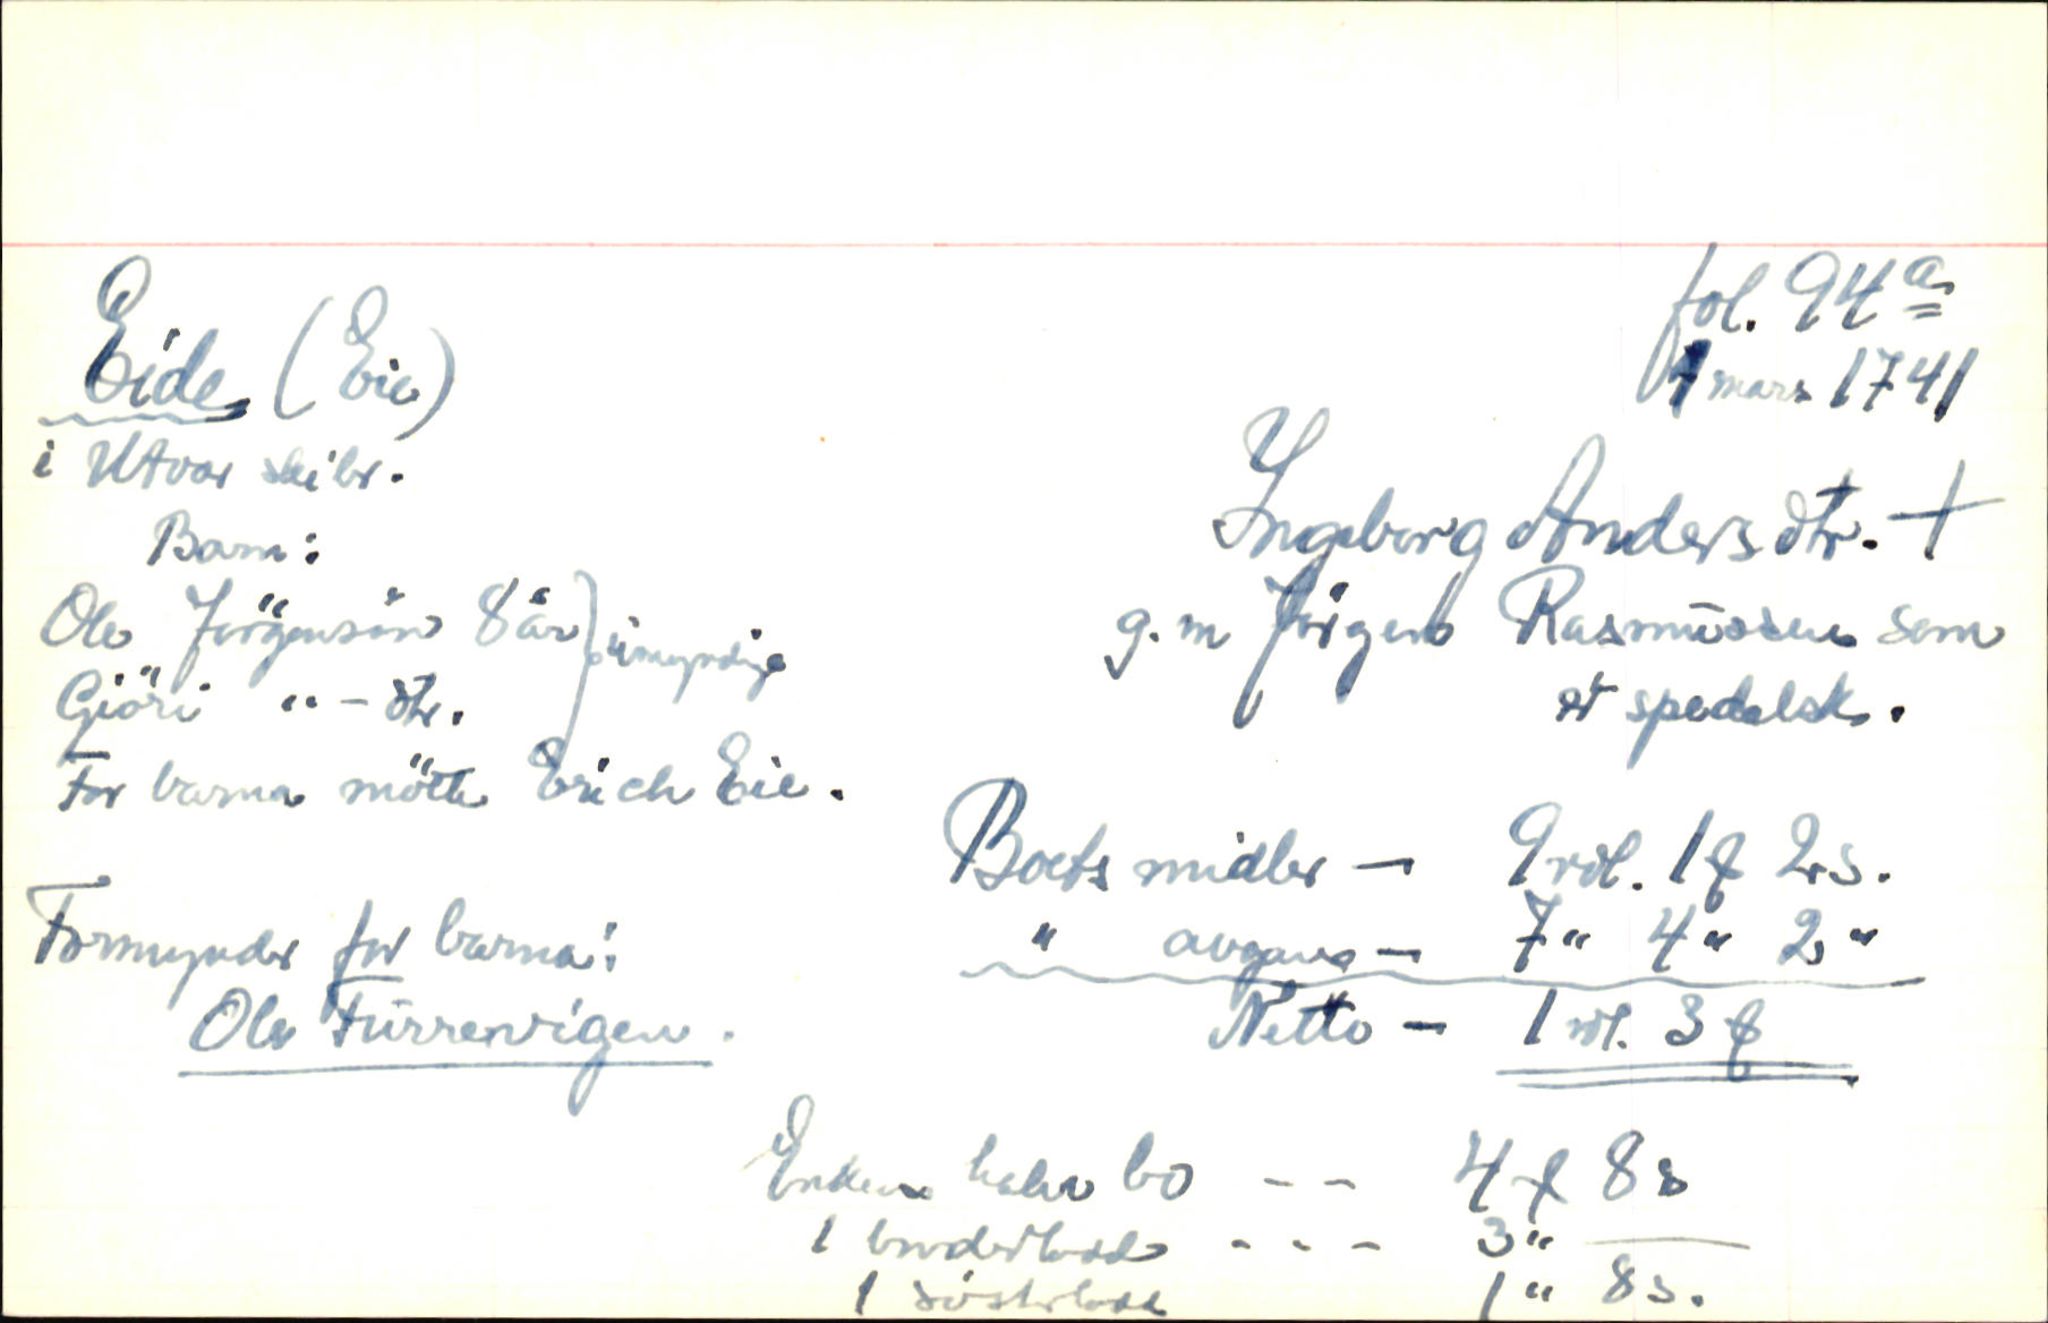 fol. 94a
Eide (Eie)
1 mars 1741
i Utvær skibr.
Ingeborg Andersdtr. +
Barn:
Ole Jörgensön 8 år } umyndige
g. m Jörgen Rasmüssen som
Giöri " - dtr.
er spedalsk.
For barna mötte Erich Eie.
Boets midler - 9 rdl. 1 ƒ 2 s.
Formynder for barna:
" avgang - 7 " 4 " 2 "
Ole Fürrevigen.
Netto - 1 rdl. 3 ƒ
Enkens halve bo - - 4 ƒ 8 s
1 broderlodd - - - 3 "
1 sösterlodd 1 " 8 s.